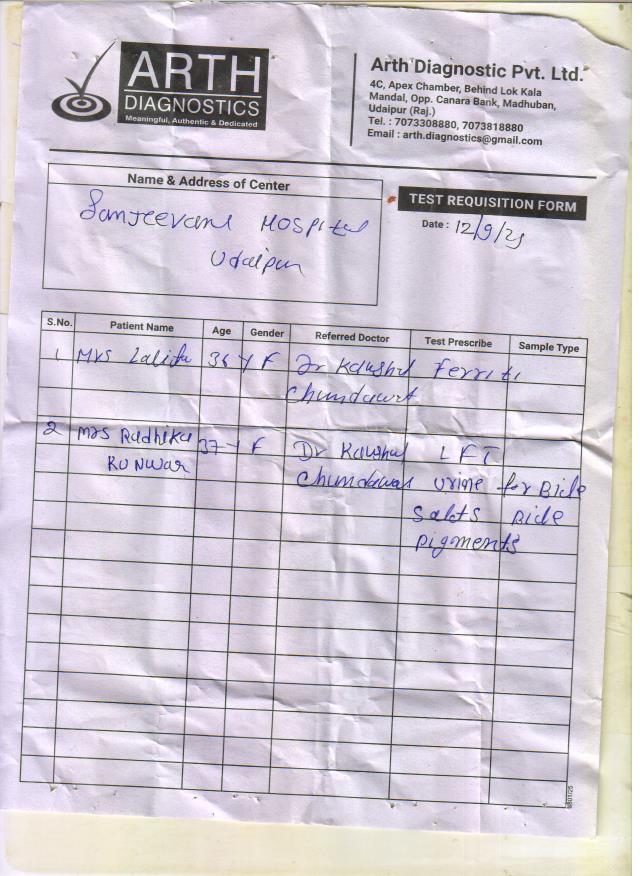 ARTH
DIAGNOSTICS
Meaningful, Authentic & Dedicated
Arth Diagnostic Pvt. Ltd.
4C, Apex Chamber, Behind Lok Kala
Mandal, Opp. Canara Bank, Madhuban,
Udaipur (Raj.)
Tel. : 7073308880, 7073818880
Email : arth.diagnostics@gmail.com
Name & Address of Center
Sanjeevani Hospital
Udaipur
TEST REQUISITION FORM
Date : 12/9/25
S.No. Patient Name Age Gender Referred Doctor Test Prescribe Sample Type
1 Mrs Lalita 36 Y F Dr Kaushal Ferriti
Chundawat
2 Mrs Radhika 37 Y F Dr Kaushal LFT
Kunwar Chundawat Urine for Bile
Salts Bile
Pigments